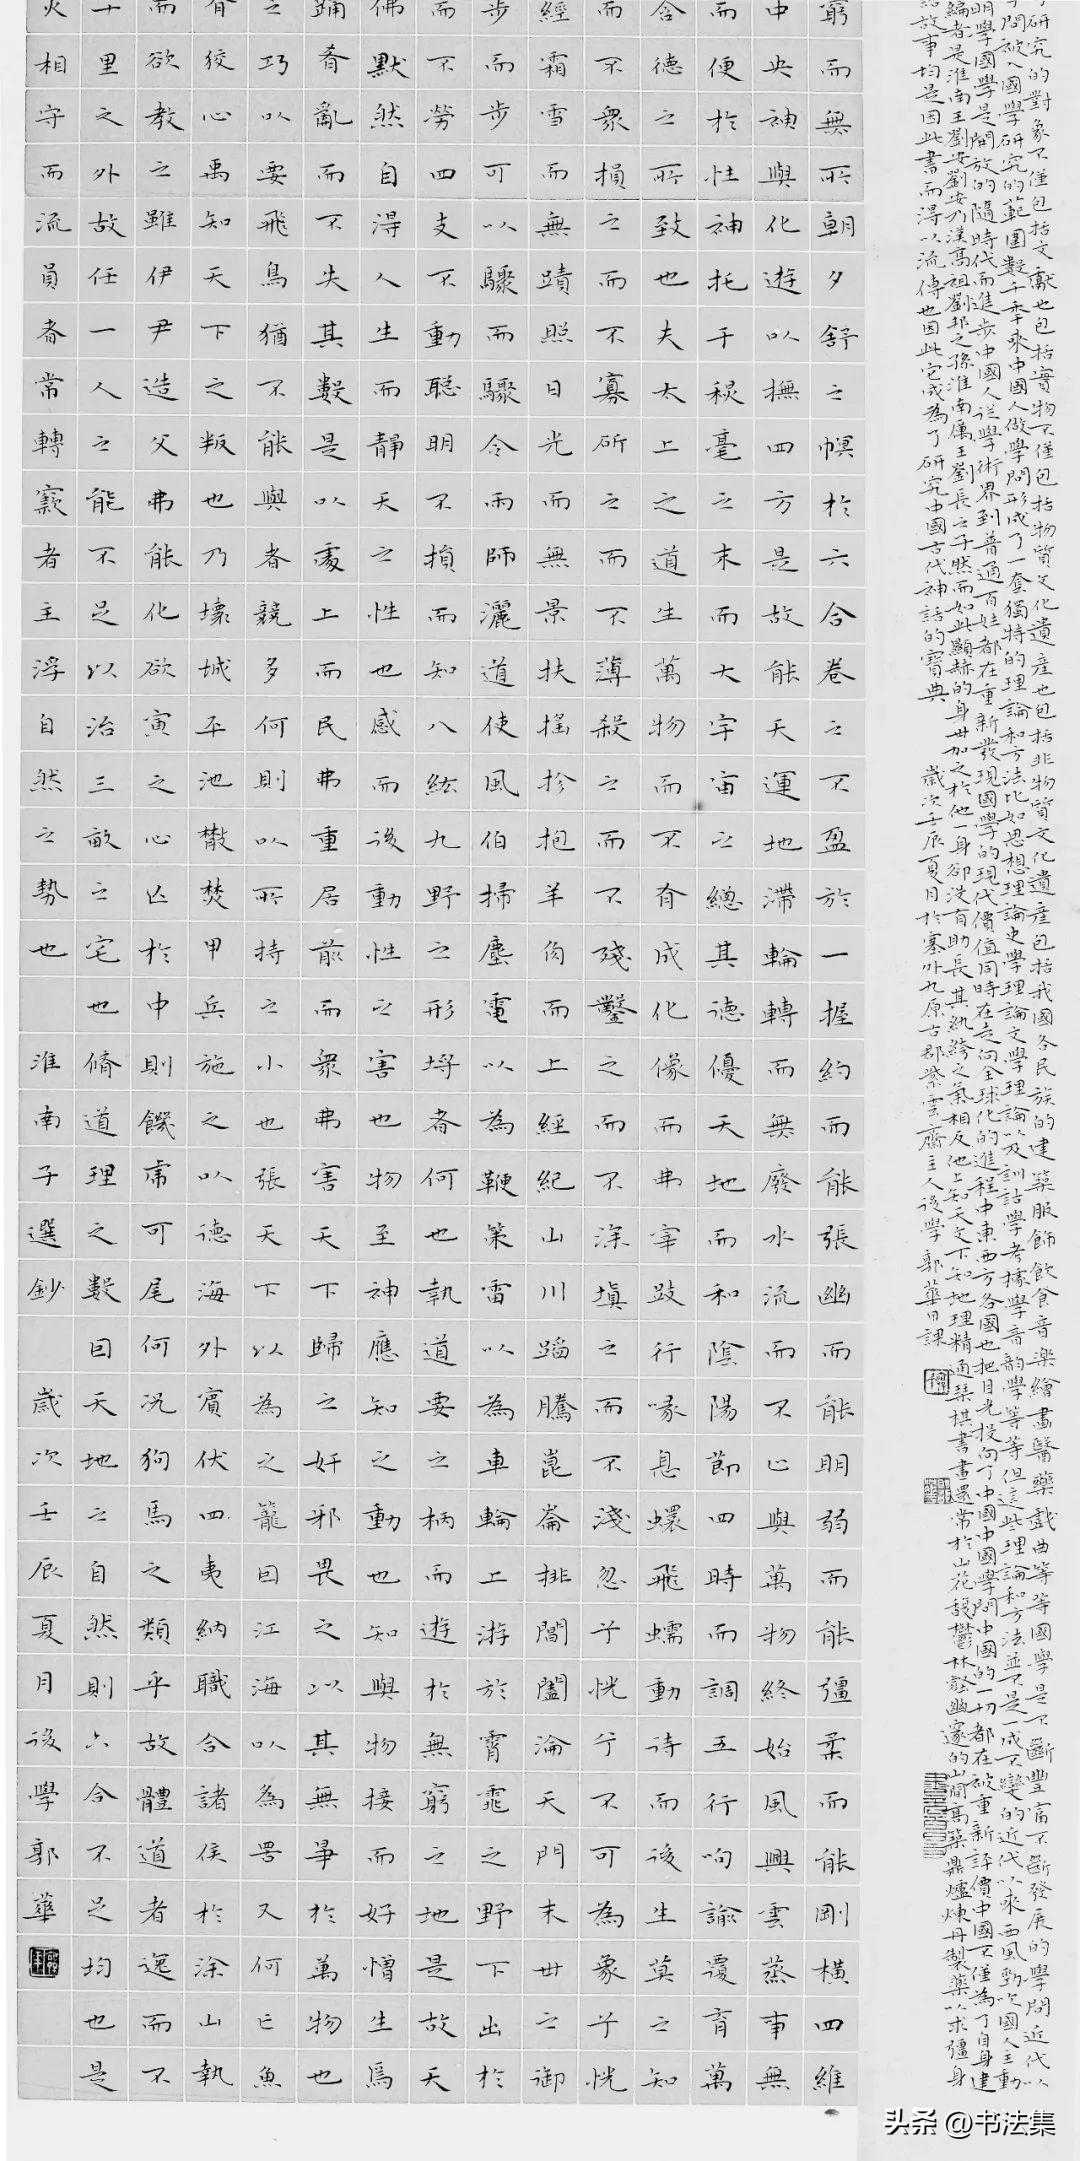 研究的對象不僅包括文獻也包括實物不僅包括物質文化遺產也包括非物質文化遺產包括我國各民族的建築服飾飲食音樂繪畫醫藥戲曲等等國學是不斷豐富不斷發展的學問近代以
問被入國學研究的範圍數千年來中國人做學問形成了一套獨特的理論和方法比如思想理論史學理論文學理論以及訓詁學考據學音韻學等等但這些理論和方法並不是一成不變的近代以來西風勁吹國人主動
明學國學是開放的隨時代而進步中國人從學術界到普通百姓都在重新發現國學的現代價值同時在走向全球化的進程中東西方各國也把目光投向了中國中國學問中國的一切都在被重新評價中國不僅為了自身建
編者是淮南王劉安劉安乃漢高祖劉邦之孫淮南厲王劉長之子然而如此顯赫的身世加之於他一身卻沒有助長其紈絝之氣相反他上知天文下知地理精通琴棋書畫還常於山花馥鬱林壑幽邃的山間高築鼎爐煉丹製藥以求彊身
故事均是因此書而得以流傳也因此它成為了研究中國古代神話的寶典 歲次壬辰夏月於塞外九原古郡紫雲齋主人後學郭華日課
窮而無所朝夕舒之幎於六合卷之不盈於一握約而能張幽而能明弱而能彊柔而能剛橫四維
中央神與化遊以撫四方是故能天運地滯輪轉而無廢水流而不止與萬物終始風興雲蒸事無
而便於性神托于秋毫之末而大宇宙之總其德優天地而和陰陽節四時而調五行呴諭覆育萬
含德之所致也夫太上之道生萬物而不有成化像而弗宰跂行喙息蠉飛蠕動待而後生莫之知
而不眾損之而不寡斫之而不薄殺之而不殘鑿之而不深填之而不淺忽兮怳兮不可為象兮怳
經霜雪而無蹟照日光而無景扶搖抮抱羊角而上經紀山川蹈騰崑崙排閶闔淪天門末世之御
步而步可以驟而驟令雨師灑道使風伯掃塵電以為鞭策雷以為車輪上游於霄霓之野下出於
而不勞四支不動聰明不損而知八紘九野之形埒者何也執道要之柄而遊於無窮之地是故天
佛默然自得人生而靜天之性也感而後動性之害也物至神應知之動也知與物接而好憎生焉
踊肴亂而不失其數是以處上而民弗重居前而眾弗害天下歸之奸邪畏之以其無爭於萬物也
之巧以要飛鳥猶不能與者競多何則以所持之小也張天下以為之籠因江海以為罟又何亡魚
有狡心禹知天下之叛也乃壞城平池散焚甲兵施之以德海外賓伏四夷納職合諸侯於涂山執
而欲教之雖伊尹造父弗能化欲寅之心亡於中則饑虎可尾何況狗馬之類乎故體道者逸而不
千里之外故任一人之能不足以治三畝之宅也脩道理之數因天地之自然則六合不足均也是
火相守而流員者常轉窾者主浮自然之勢也 淮南子選鈔 歲次壬辰夏月後學郭華
头条 @书法集